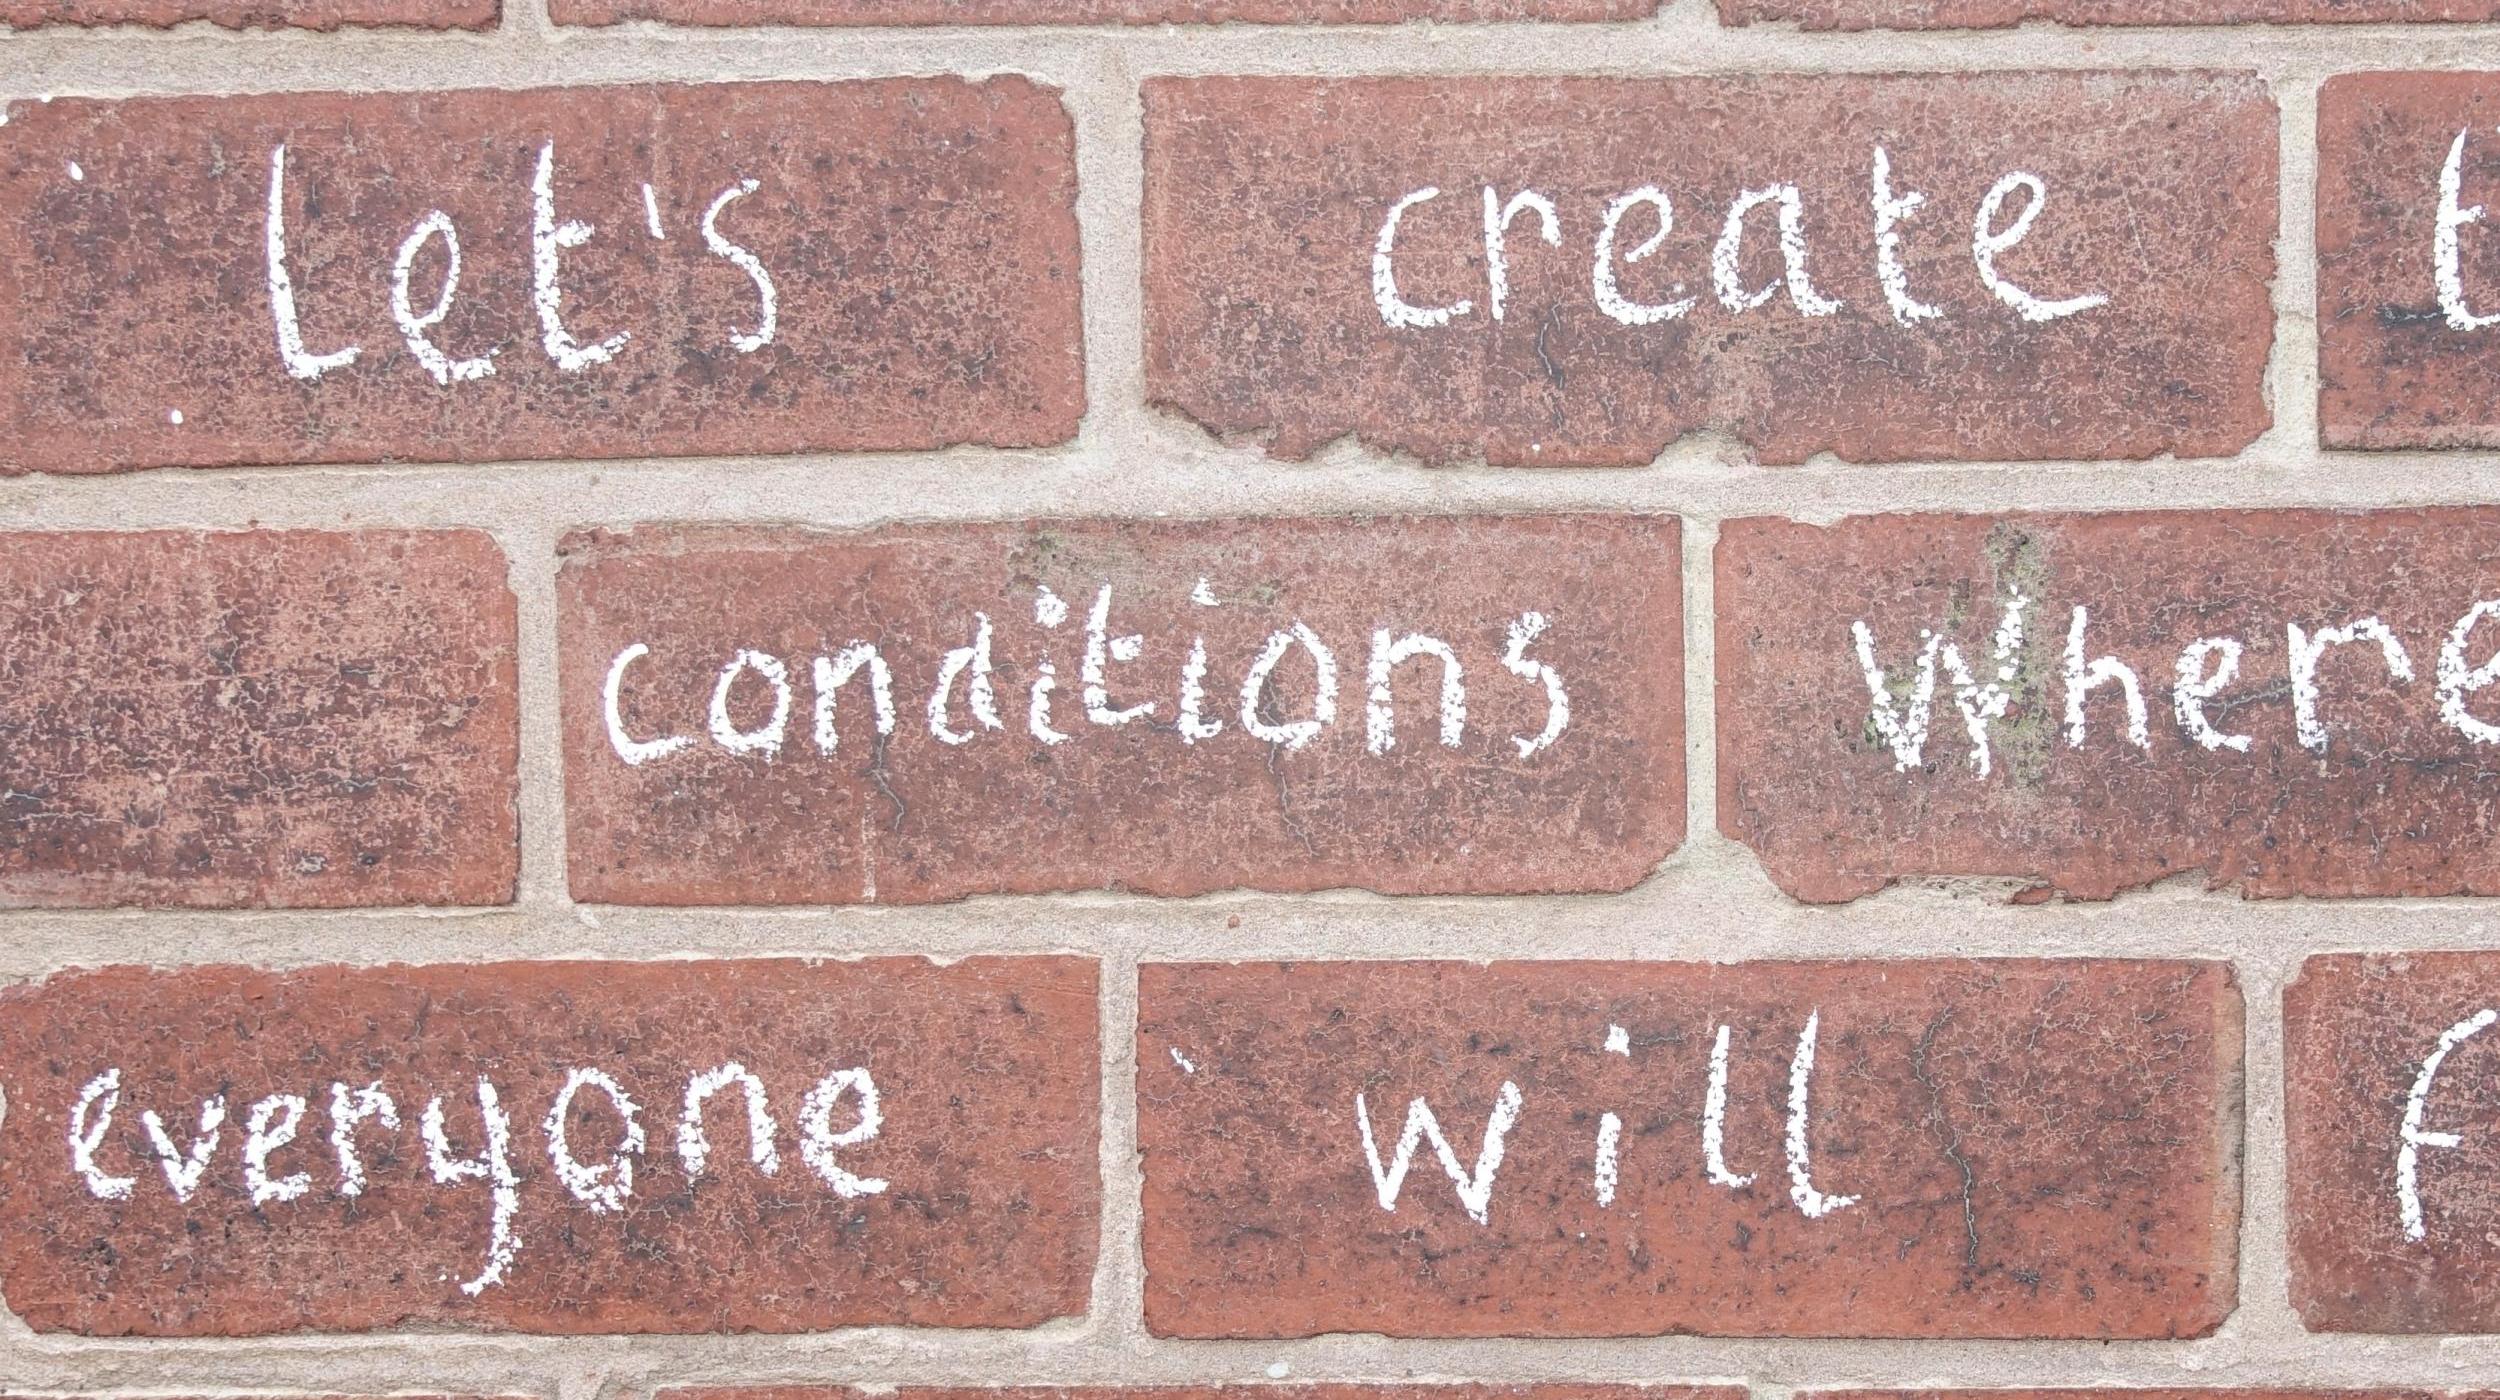 Let's create t
conditions where
everyone will f